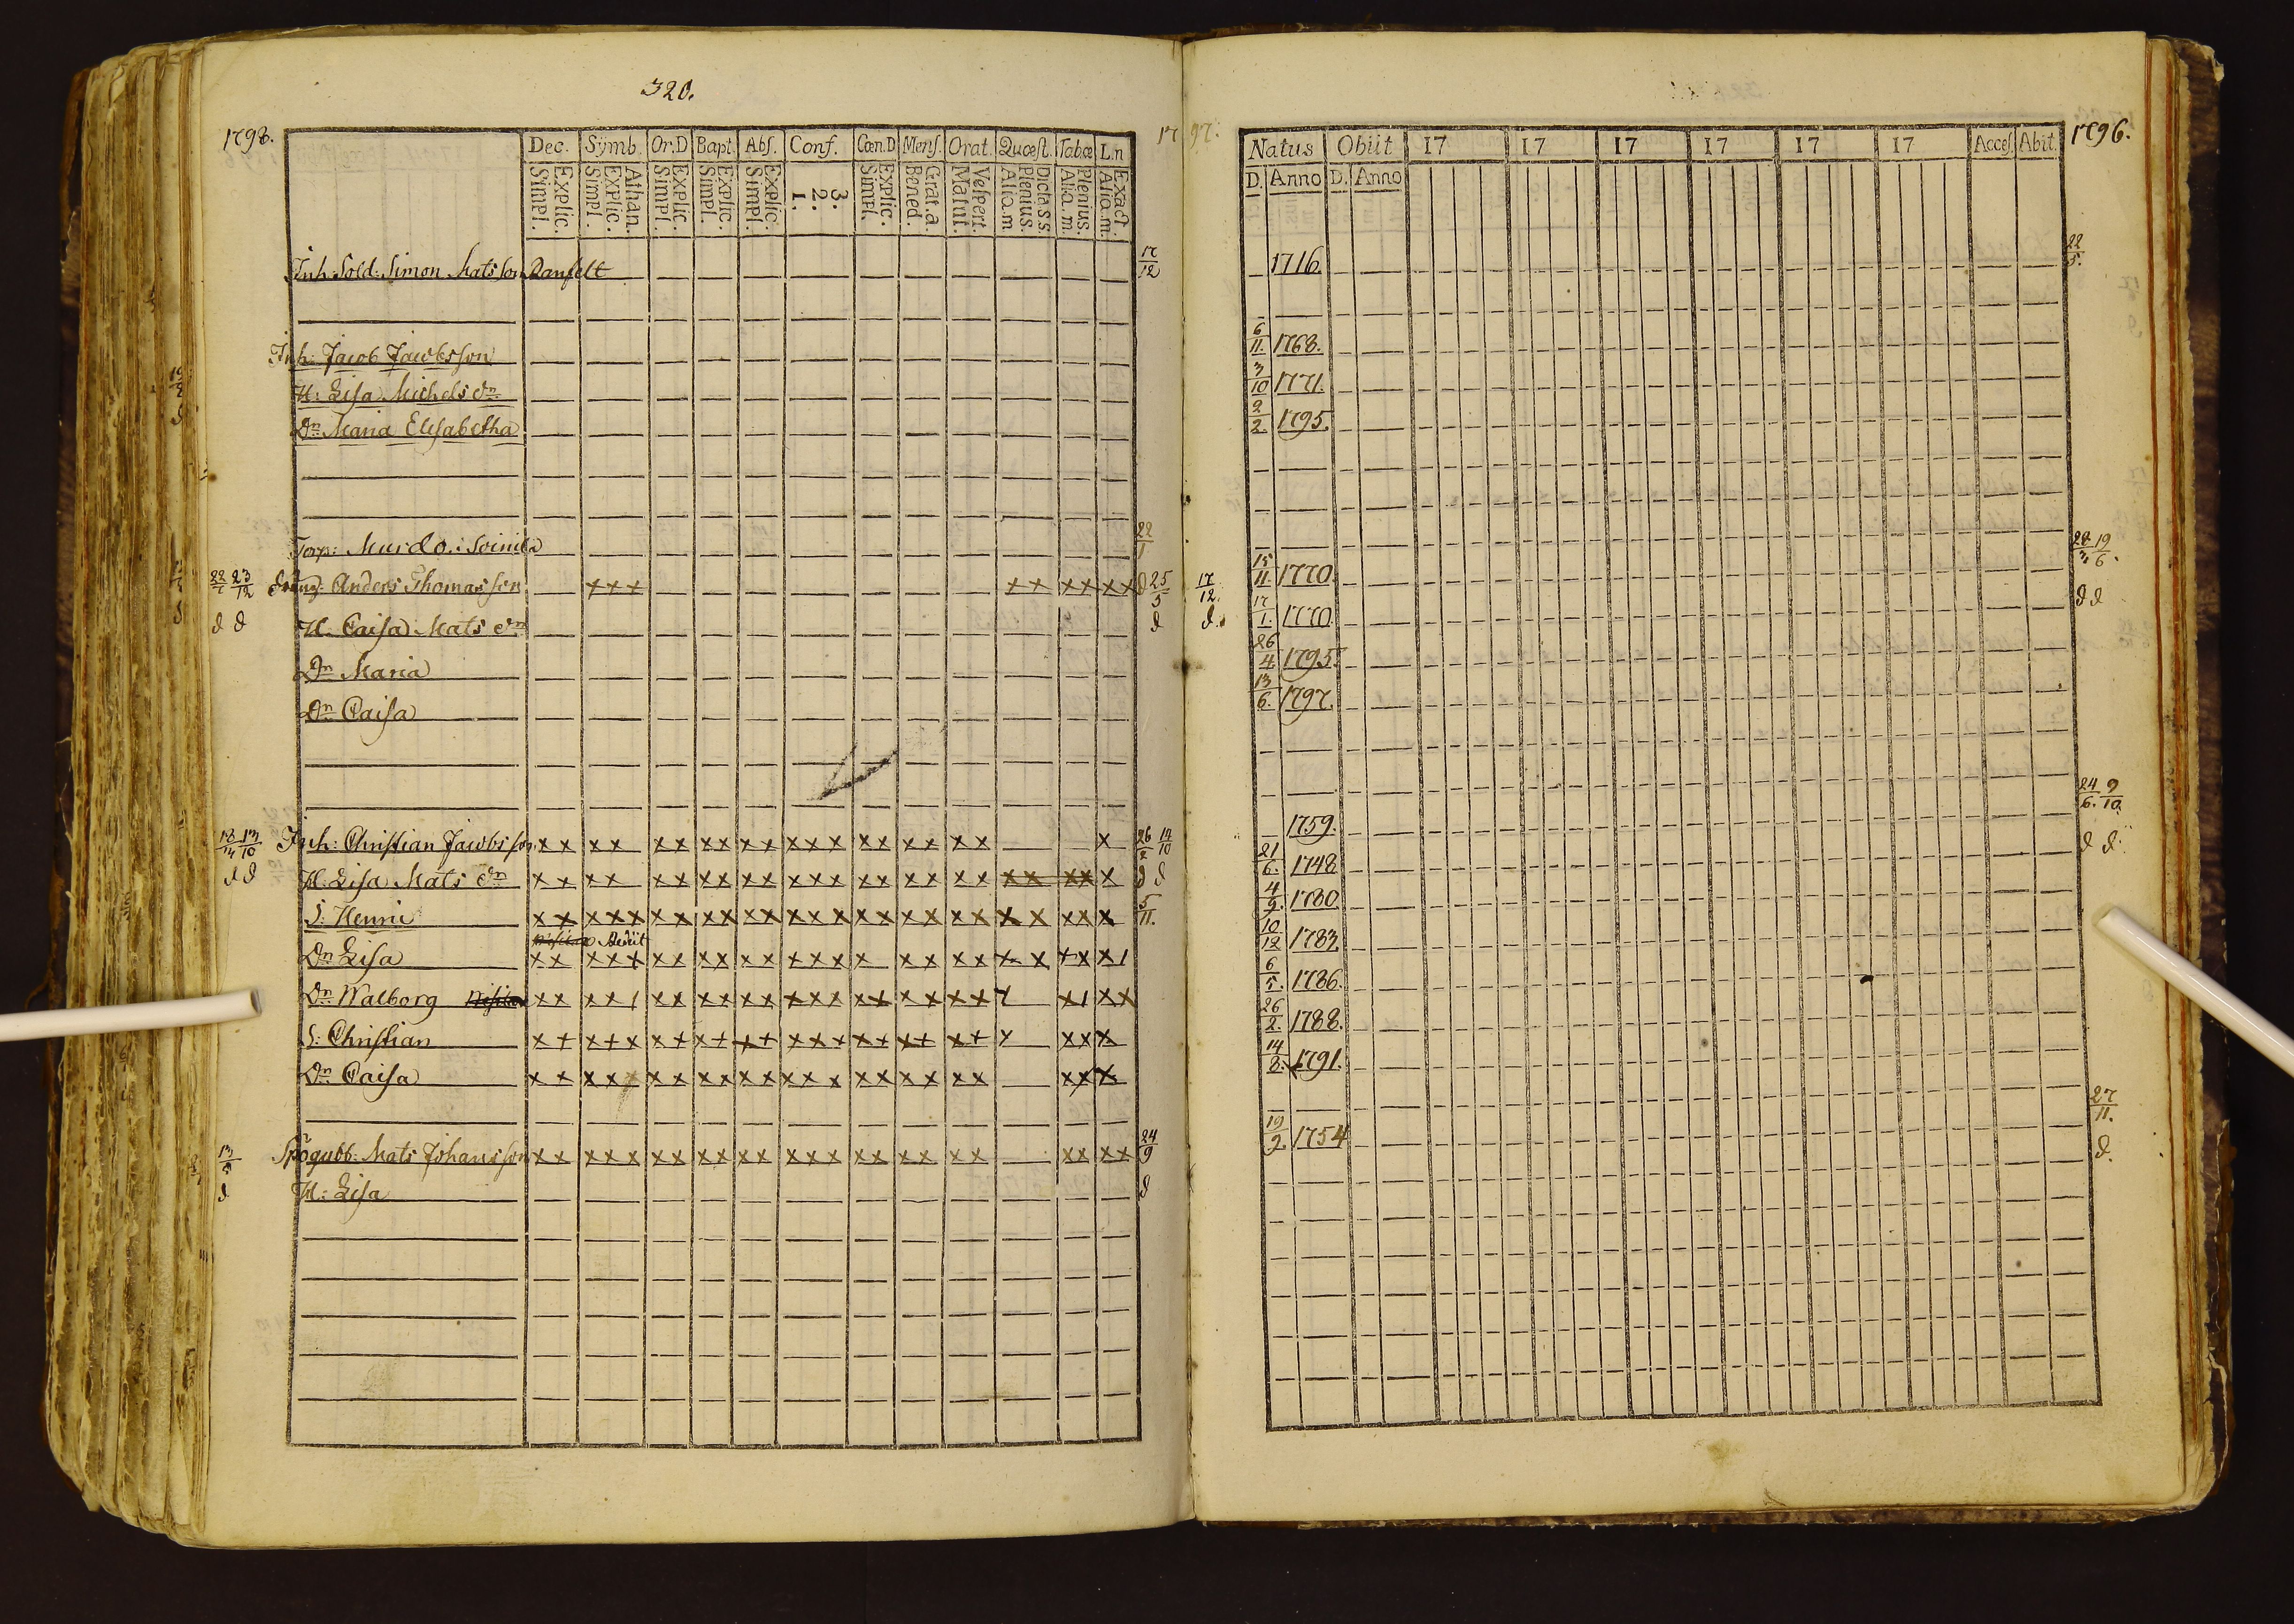 320.
1798.
1797.
Dec. Symb. Or.D Bapt. Abs. Conf. Cœn.D Mens. Orat. Quæst. Tabæ L.n
Explic. Simpl. Athan. Explic. Simpl. Explic. Simpl. Explic. Simpl. Explic. Simpl. 3. 2. 1. Explic. Simpl. Grat.a. Bened. Vespert. Matut. Dicta s.s. Plenius. Aliq.m Plenius. Aliq.m. Exact. Aliq.m.
Inh: Sold: Simon Matsson Danfelt 17/12
Inh: Jacob Jacobsson
H: Lisa Michels dr
Dr Maria Elisabetha
Torp: Murdo: Soinila 22/1
22/1 23/12 Anders Thomasson xxx xx xx xx d 25/5
d d H. Caisa Mats dr d
Dr Maria
Dr Caisa
13/10 Inh: Christian Jacobsson xx xx xx xx xx xxx xx xx xx x 26/2 14/10
d d H: Lisa Mats dr xx xx xx xx xx xxx xx xx xx xx xx x d d
S: Henric xx xxx xx xx xx xxx xx xx xx xx xx x 5/11.
Dr Lisa xx xxx xx xx xx xxx x xx xx xx xx x1
Dr Walborg xx xx1 xx xx xx xxx xx xx xx x x1 xx
S: Christian xx xxx xx xx xx xxx xx xx xx x xx x
Dr Caisa xx xxx xx xx xx xxx xx xx xx xx x
Spögubb: Mats Johansson xx xxx xx xx xx xxx xx xx xx xx xx 24/9
d H: Lisa d
Natus Obiit 17 17 17 17 17 17 Acces. Abit. 1796.
D. Anno D. Anno
1716. 22/5.
6/11. 1768.
3/10 1771.
9/2. 1795.
28/3. 19/6.
17/12. 15/11. 1770.
d. 17/1. 1770. d d
26/4. 1795.
13/6. 1797.
24/6. 9/10.
1759.
21/6. 1748 d d
4/9. 1780.
10/12 1783.
6/5. 1786.
26/2. 1788.
14/8. 1791.
27/11.
19/9. 1754
d.